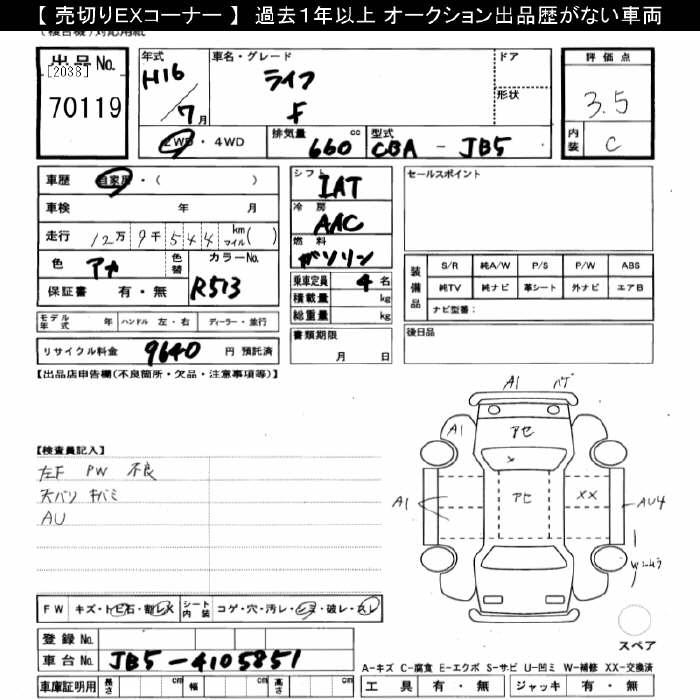 【 売切りEXコーナー 】 過去１年以上 オークション出品歴がない車両
出品 No. [2038] 70119
年式 H16 / 7 月
車名・グレード ライフ F
ドア
形状
評価点 3.5
内装 C
2WD ・ 4WD
排気量 660 cc
型式 CBA - JB5
車歴 自家用 ・ ( )
車検 年 月
走行 12万 9千 5 4 4 km マイル ( )
色 アカ 色替 カラーNo. R513
保証書 有 ・ 無
シフト IAT
冷房 AAC
燃料 ガソリン
乗車定員 4 名
積載量 kg
総重量 kg
セールスポイント
装備品 S/R 純A/W P/S P/W ABS
純TV 純ナビ 革シート 外ナビ エアB
ナビ型番：
モデル年式 年 ハンドル 左・右 ディーラー・並行
書類期限 月 日
後日品
リサイクル料金 9640 円 預託済
【出品店申告欄(不良箇所・欠品・注意事項等)】
A1 バゲ
A1 アセ
【検査員記入】
左F PW 不良
天バリ キバミ
AU
A1 アセ XX AU4
FW キズ・トビ石・割レ・X シート内装 コゲ・穴・汚レ・シミ・破レ・スレ
登録 No.
スペア
車台 No. JB5-4105851
A-キズ C-腐食 E-エクボ S-サビ U-凹ミ W-補修 XX-交換済
車庫証明用 長さ cm 幅 cm 高さ cm
工具 有 ・ 無 ジャッキ 有 ・ 無